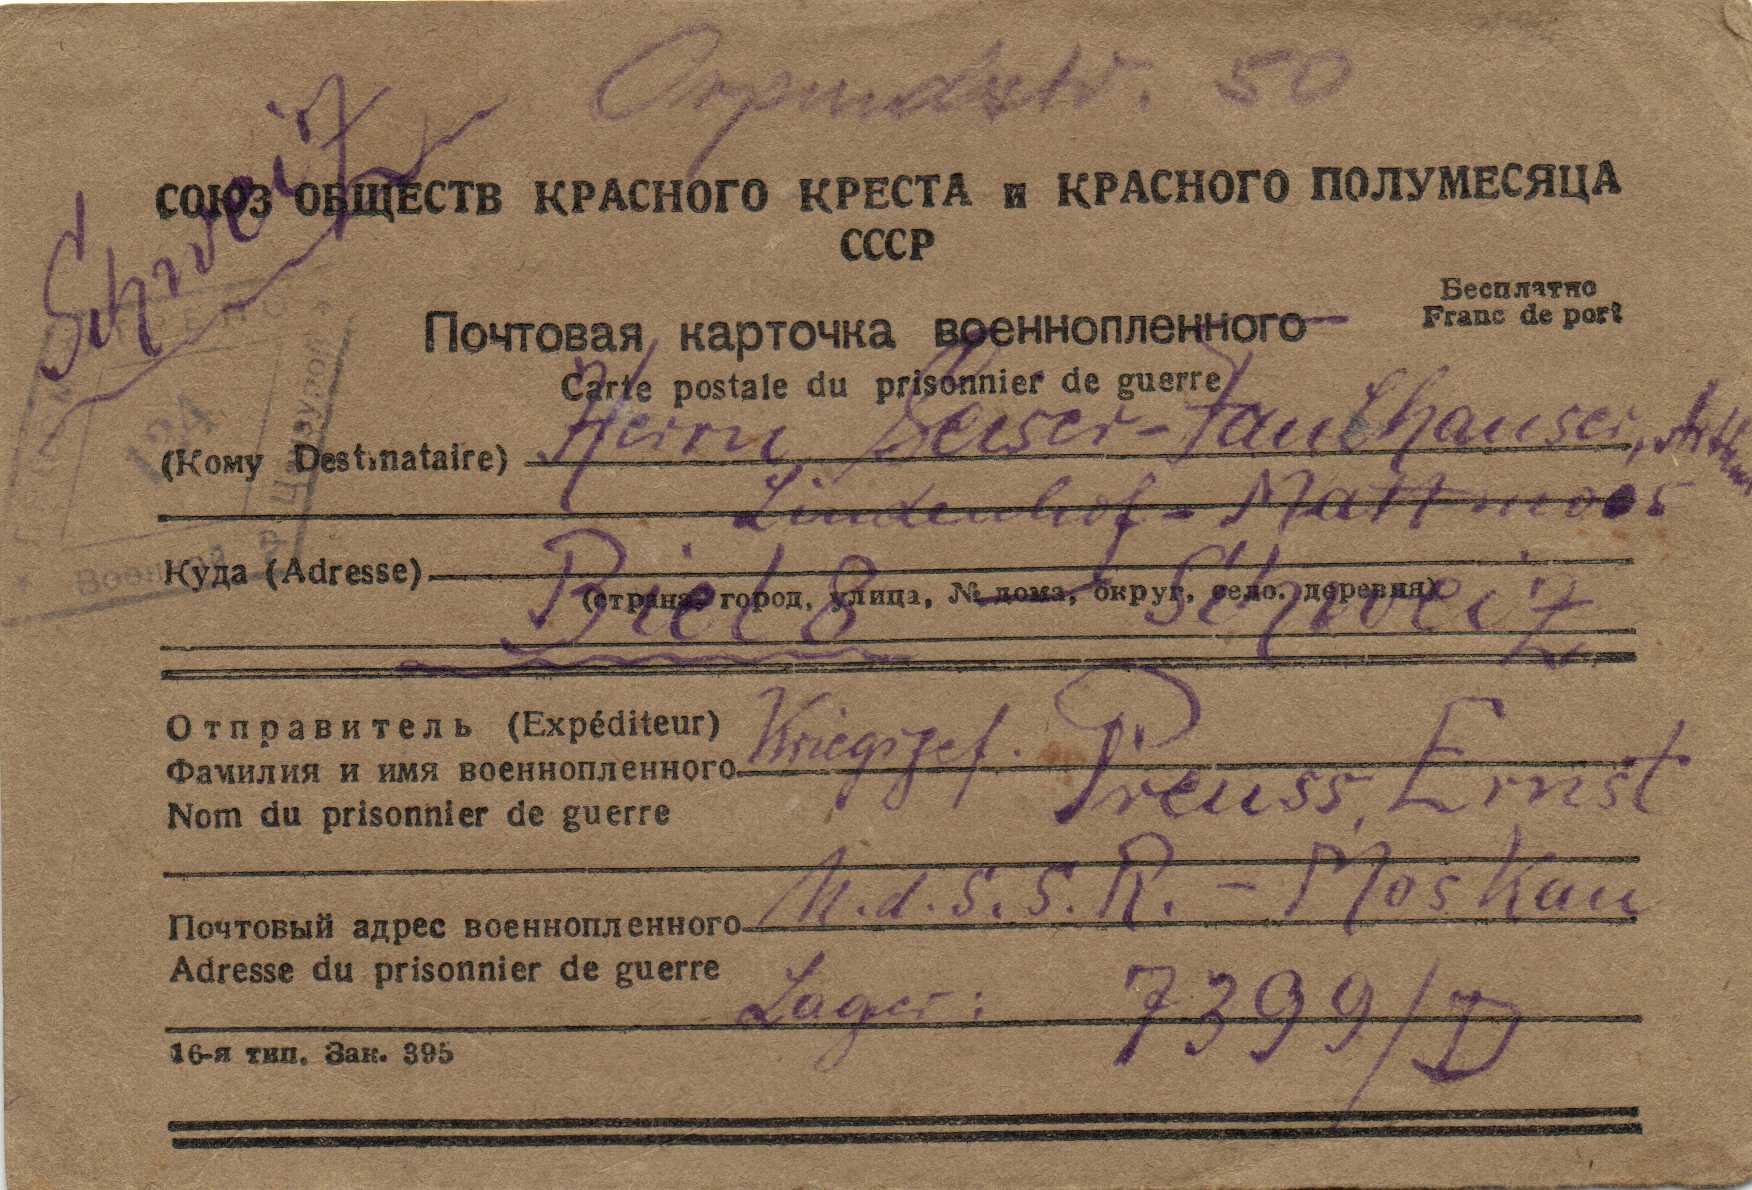 Orpundstr. 50
Schweiz
СОЮЗ ОБЩЕСТВ КРАСНОГО КРЕСТА и КРАСНОГО ПОЛУМЕСЯЦА
СССР
Бесплатно
Franc de port
Почтовая карточка военнопленного
Carte postale du prisonnier de guerre
(Кому Destinataire) Herrn Keiser-Fankhauser,
Lindenhof-Mattmoos
Куда (Adresse) Biel 8 - Schweiz
(страна, город, улица, № дома, округ, село, деревня)
Отправитель (Expéditeur) Kriegsgef. Preuss, Ernst
Фамилия и имя военнопленного
Nom du prisonnier de guerre
Почтовый адрес военнопленного U.d.S.S.R. - Moskau
Adresse du prisonnier de guerre
Lager: 7399/
16-я тип. Зак. 395
124
Военной
Цензурой